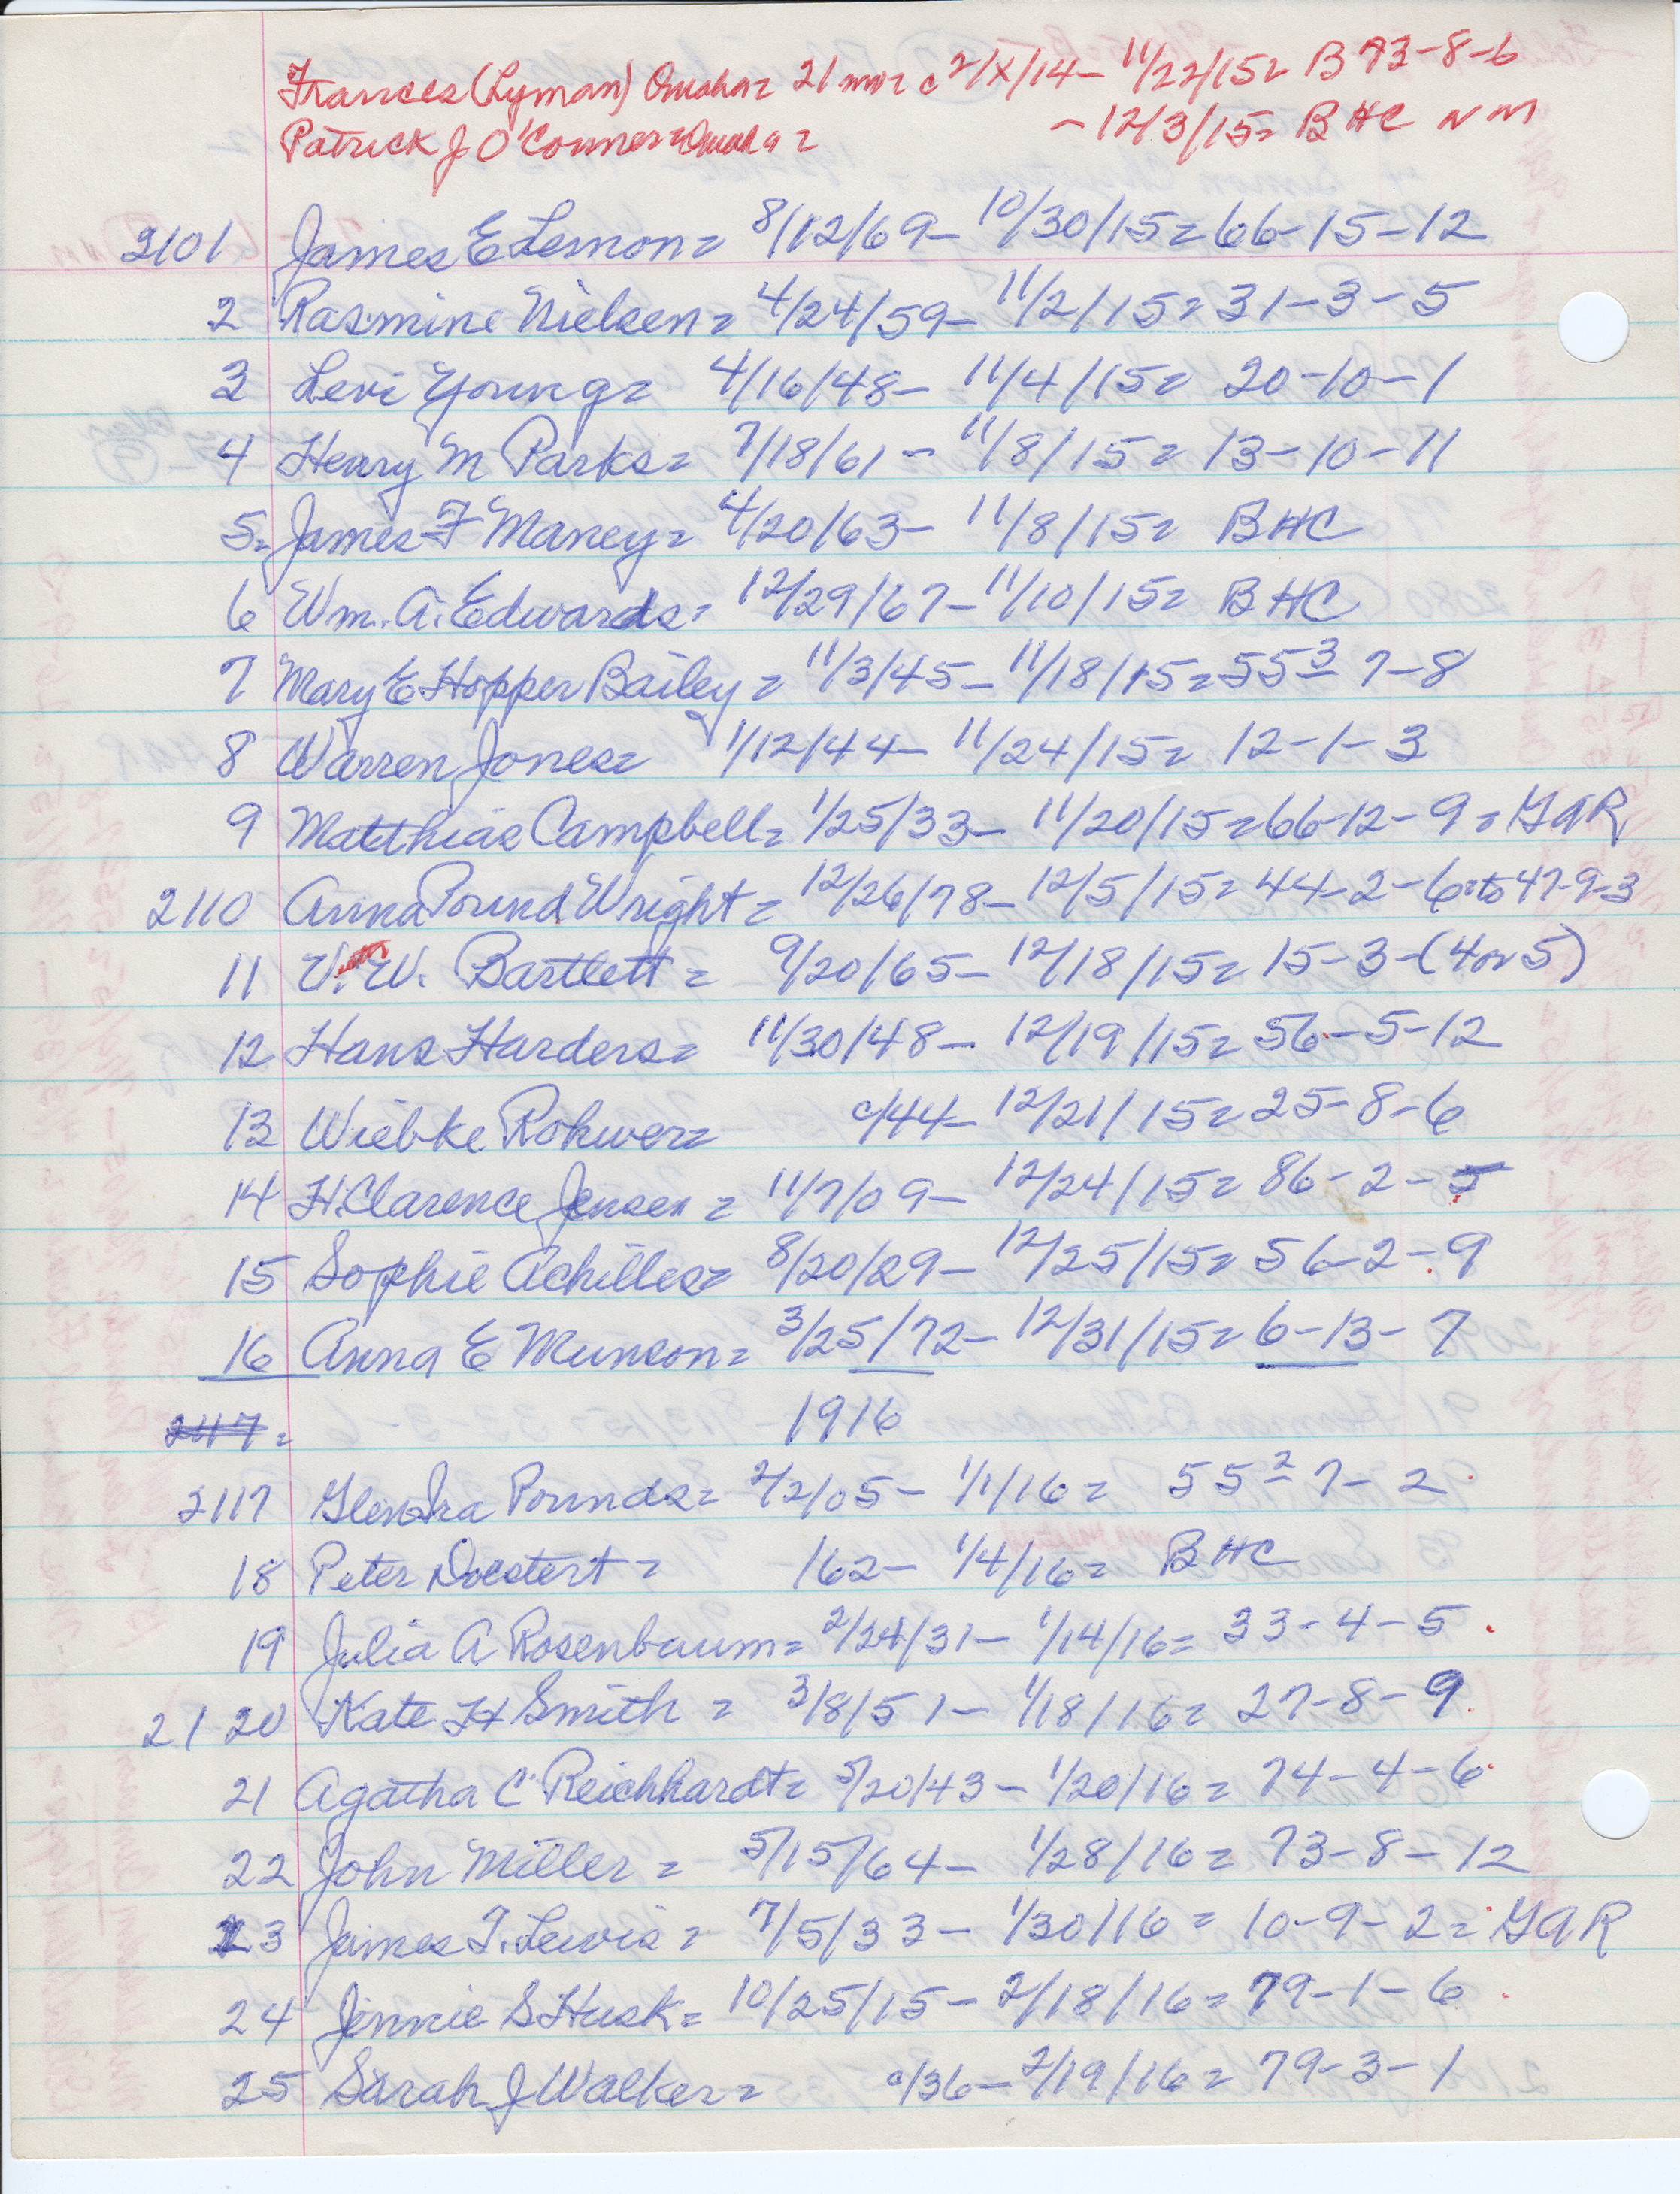 Frances (Lyman) Omaha = 21 mr = c 2/x/14 - 11/22/15 = B 73-8-6
Patrick J O'Conner = Omaha = - 12/3/15 = BHC N M
2101 James E Lemon = 8/12/69 - 10/30/15 = 66-15-12
2 Rasmine Nielsen = 4/24/59 - 11/2/15 = 31-3-5
3 Levi Young = 4/16/48 - 11/4/15 = 20-10-1
4 Henry M Parks = 7/18/61 - 11/8/15 = 13-10-11
5 = James F Maney = 4/20/63 - 11/8/15 = BHC
6 Wm. A. Edwards = 12/29/67 - 11/10/15 = BHC
7 Mary E Hopper Bailey = 11/3/45 - 11/18/15 = 55 3 7-8
8 Warren Jones = 1/12/44 - 11/24/15 = 12-1-3
9 Matthias Campbell = 1/25/33 - 11/20/15 = 66-12-9 = GAR
2110 Anna Pound Wright = 12/26/78 - 12/5/15 = 44-2-6 = to 47-9-3
11 V. W. Bartlett = 9/20/65 - 12/18/15 = 15-3-(4 or 5)
12 Hans Harders = 11/30/48 - 12/19/15 = 56-5-12
13 Wiebke Rohwer = c/44 - 12/21/15 = 25-8-6
14 H. Clarence Jensen = 11/7/09 - 12/24/15 = 86-2-5
15 Sophie Achilles = 8/20/29 - 12/25/15 = 56-2-9
16 Anna E Munson = 3/25/72 - 12/31/15 = 6-13-7
2117 = 1916
2117 Glen Ira Pounds = 2/2/05 - 1/1/16 = 55 2 7-2
18 Peter Doestert = 162 - 1/4/16 = BHC
19 Julia A Rosenbaum = 2/24/31 - 1/14/16 = 33-4-5
2120 Kate H Smith = 3/8/51 - 1/18/16 = 27-8-9
21 Agatha C Reichhardt = 5/20/43 - 1/20/16 = 74-4-6
22 John Miller = 5/15/64 - 1/28/16 = 73-8-12
23 James T. Lewis = 7/5/33 - 1/30/16 = 10-9-2 = GAR
24 Jennie S Husk = 10/25/15 - 2/18/16 = 79-1-6
25 Sarah J Walker = c/36 - 2/19/16 = 79-3-1